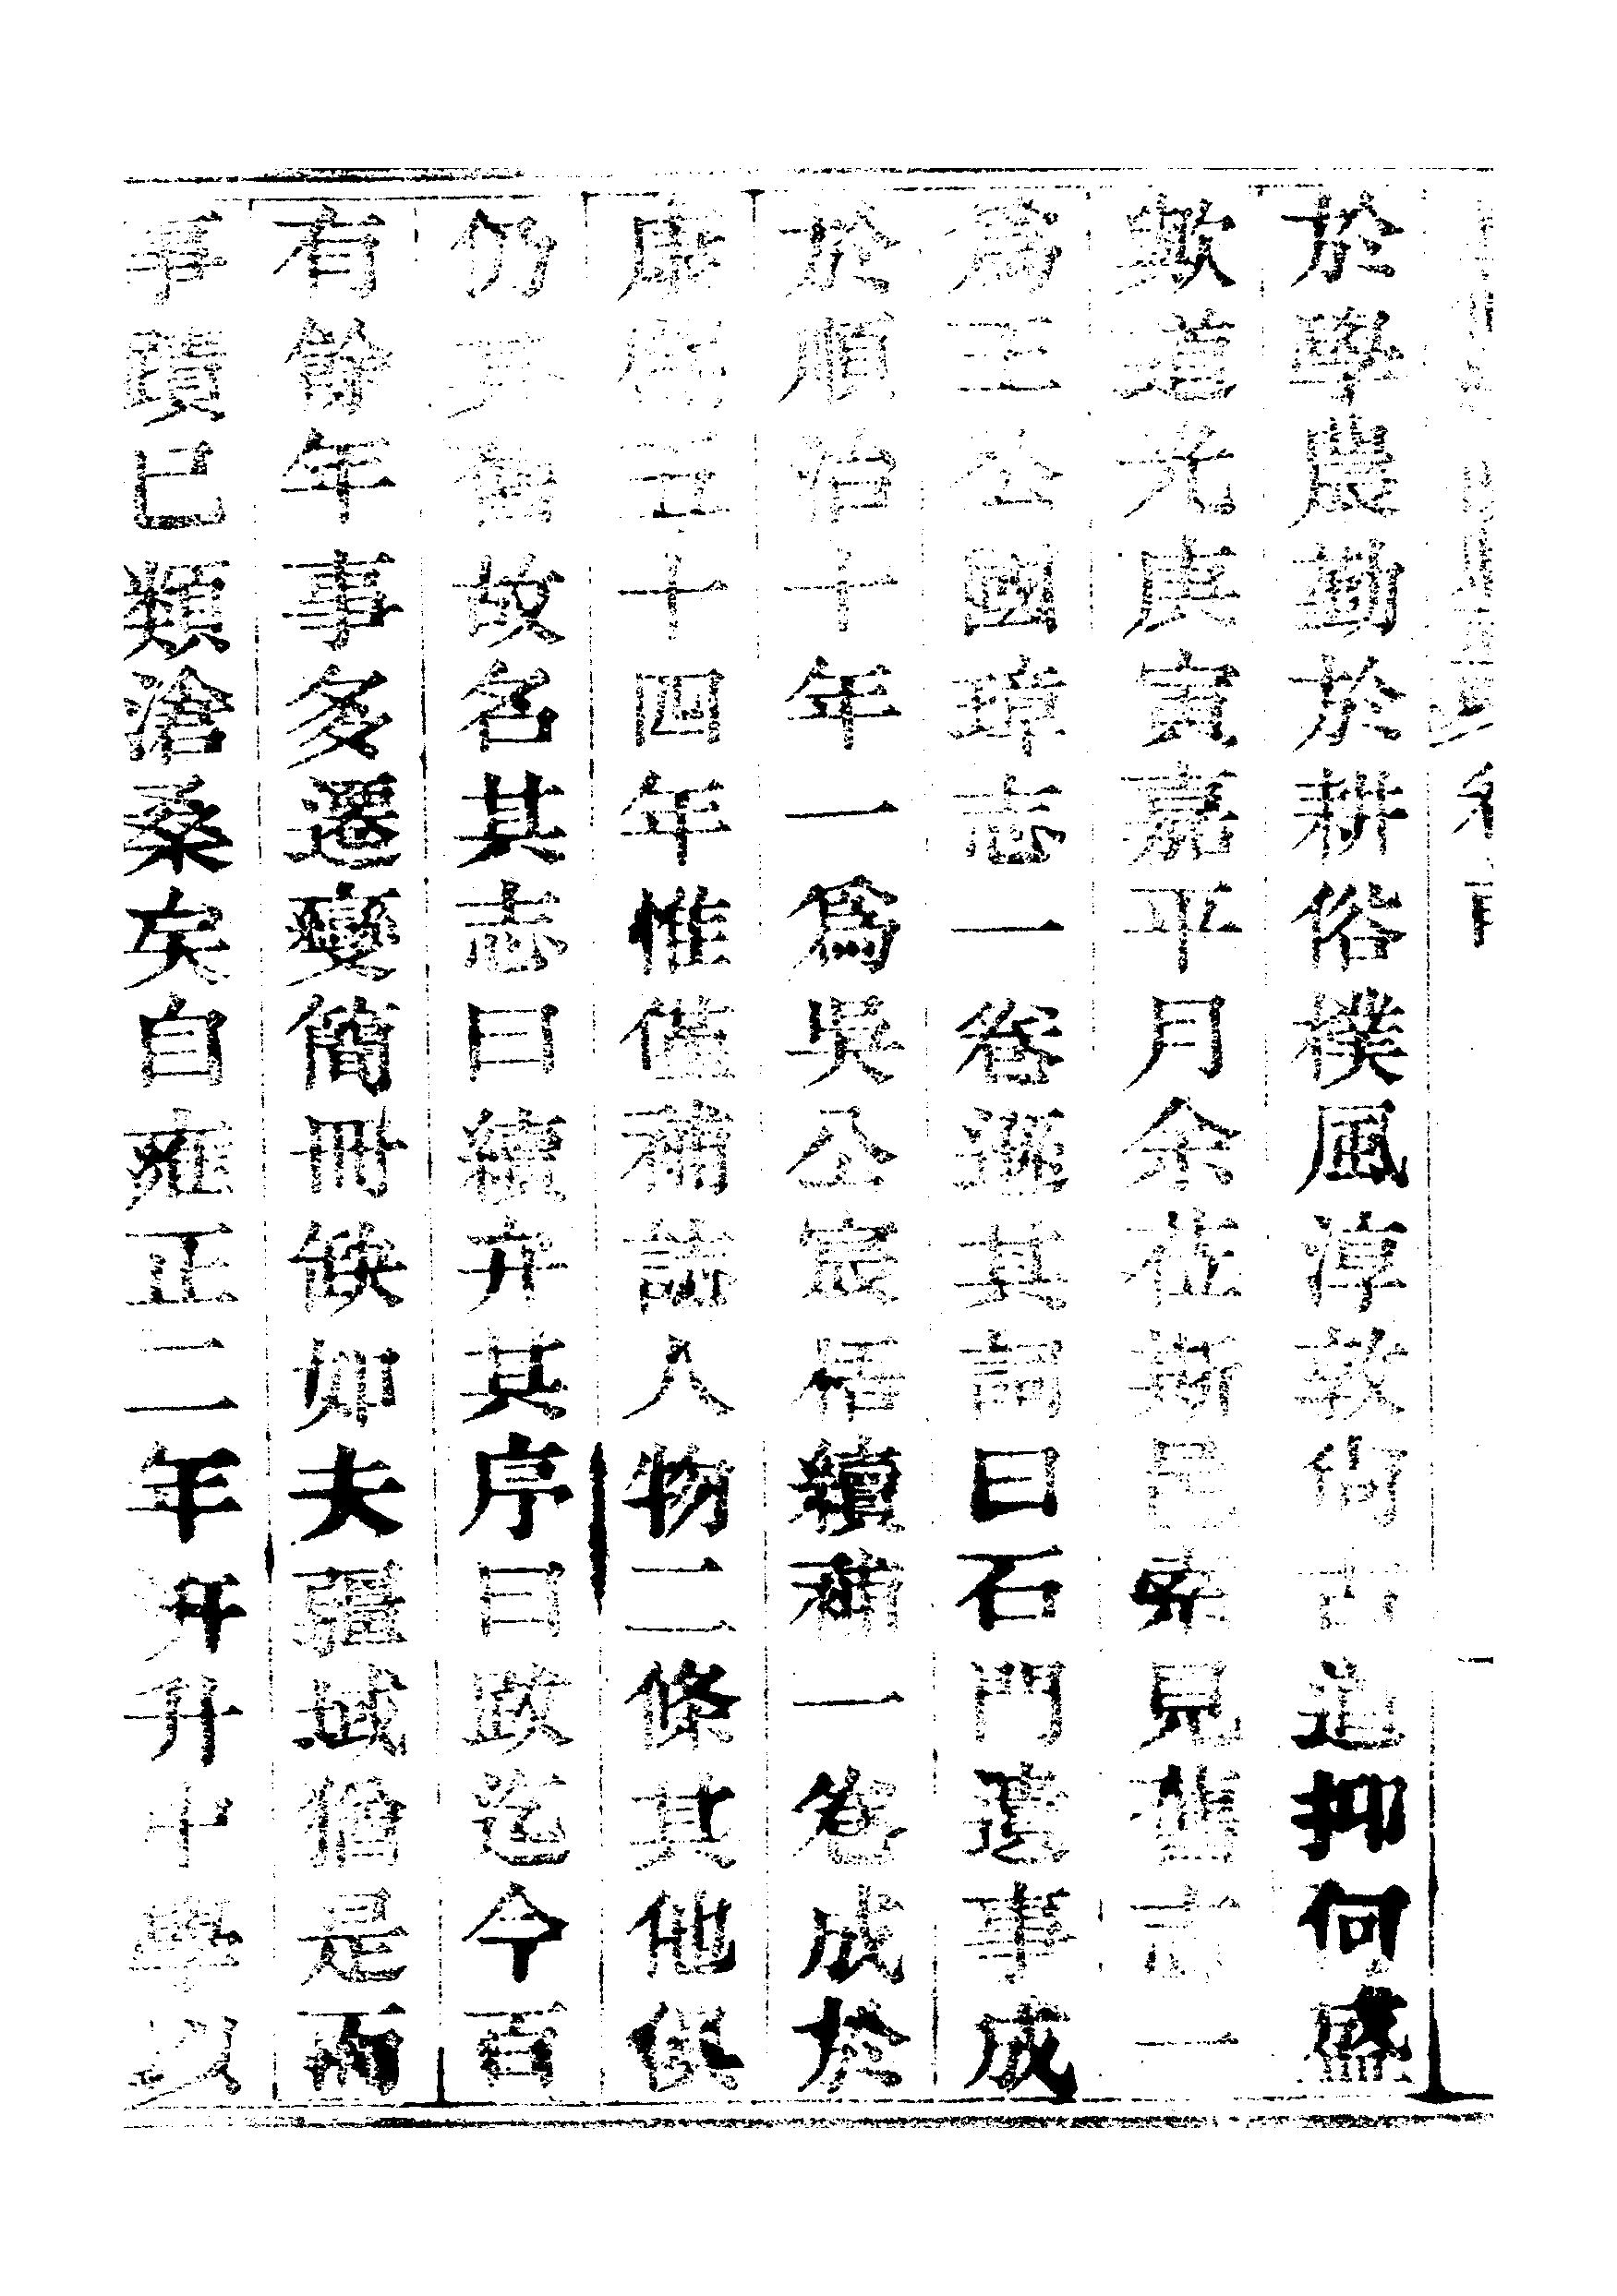 於學農勤於耕俗樸風淳敦尚古道抑何盛
歟道光庚寅嘉平月余莅斯邑索見舊志一
爲王公國瑋志一卷遜其詞曰石門遺事成
於順治十年一爲吳公宸梧續補一卷成於
康熙五十四年惟僅補誌人物二條其他俱
仍其舊故名其志曰續弁其序曰政迄今百
有餘年事多遷變簡冊缺如夫疆域猶是而
事蹟已類滄桑矣自雍正二年升中學以